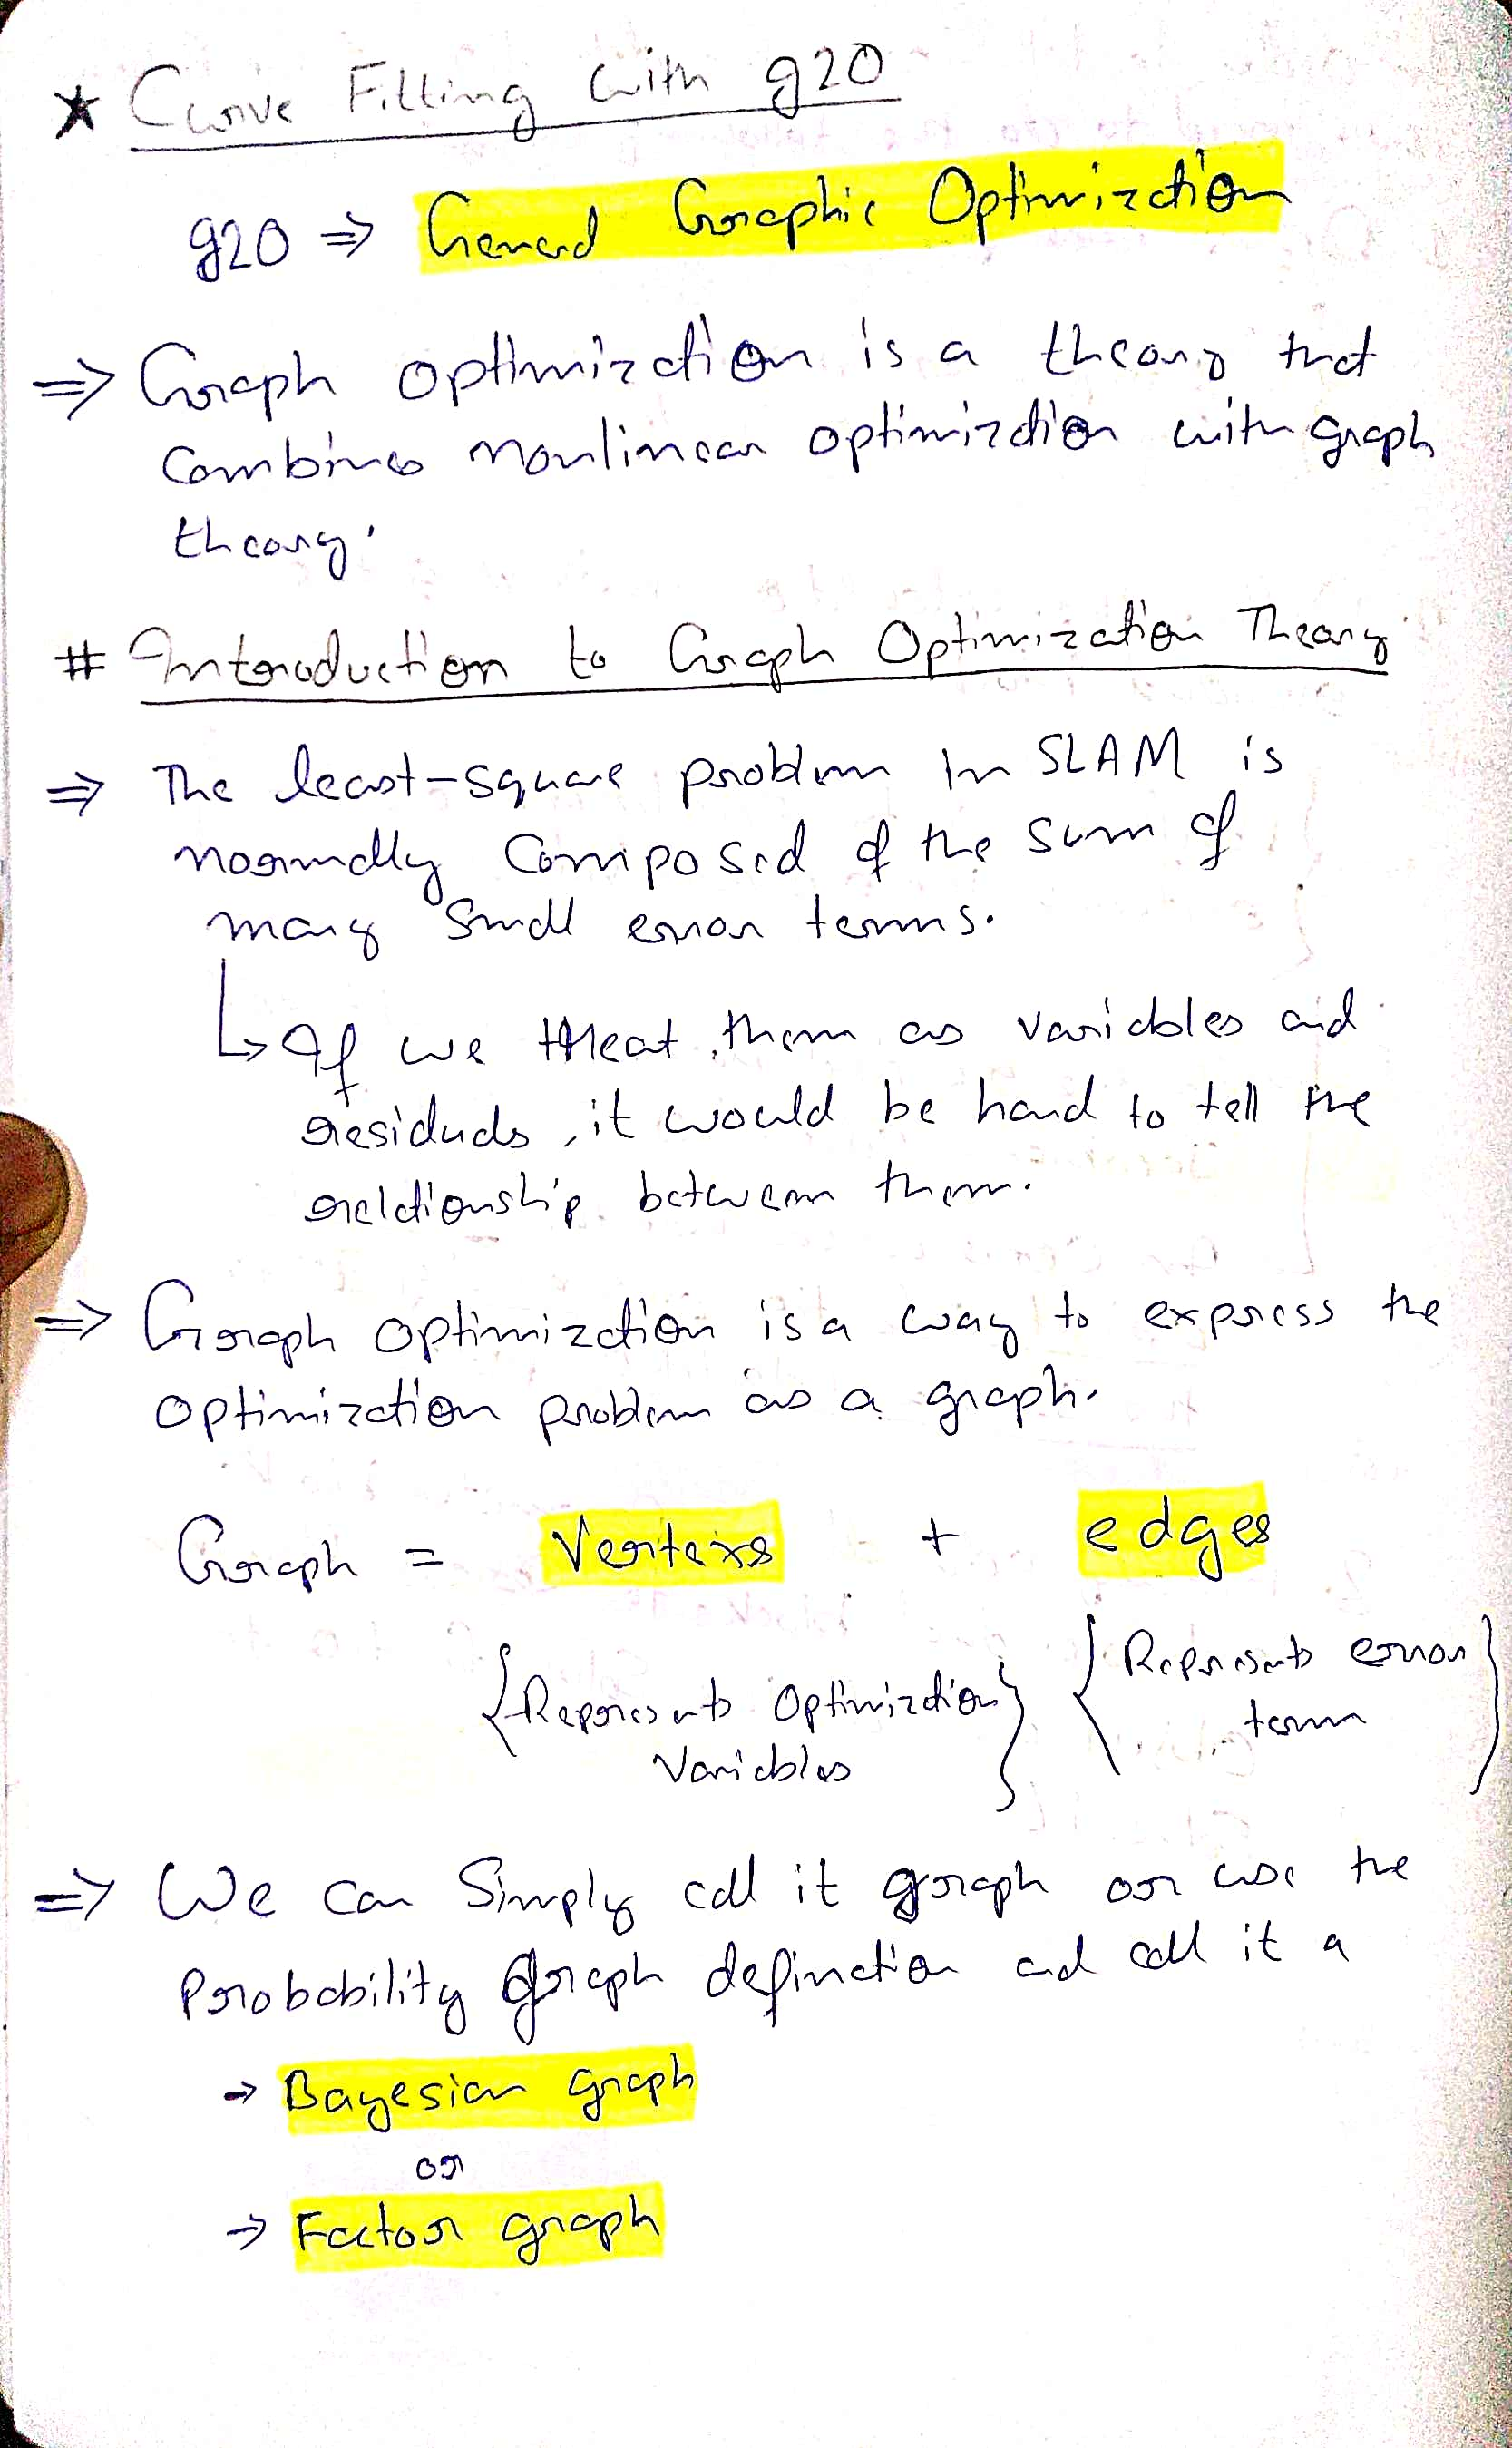 ★ Curve Fitting with g2o
g2o ⇒ General Graphic Optimization
⇒ Graph optimization is a theory that
combines nonlinear optimization with graph
theory.
# Introduction to Graph Optimization Theory
⇒ The least-square problem in SLAM is
normally composed of the sum of
many small error terms.
↳ If we treat them as variables and
residuals, it would be hard to tell the
relationship between them.
⇒ Graph optimization is a way to express the
optimization problem as a graph.
Graph = Vertexs + edges
{Represents Optimization {Represents error
Variables} term}
⇒ We can Simply call it graph or use the
Probability graph definction and call it a
→ Bayesian graph
or
→ Factor graph